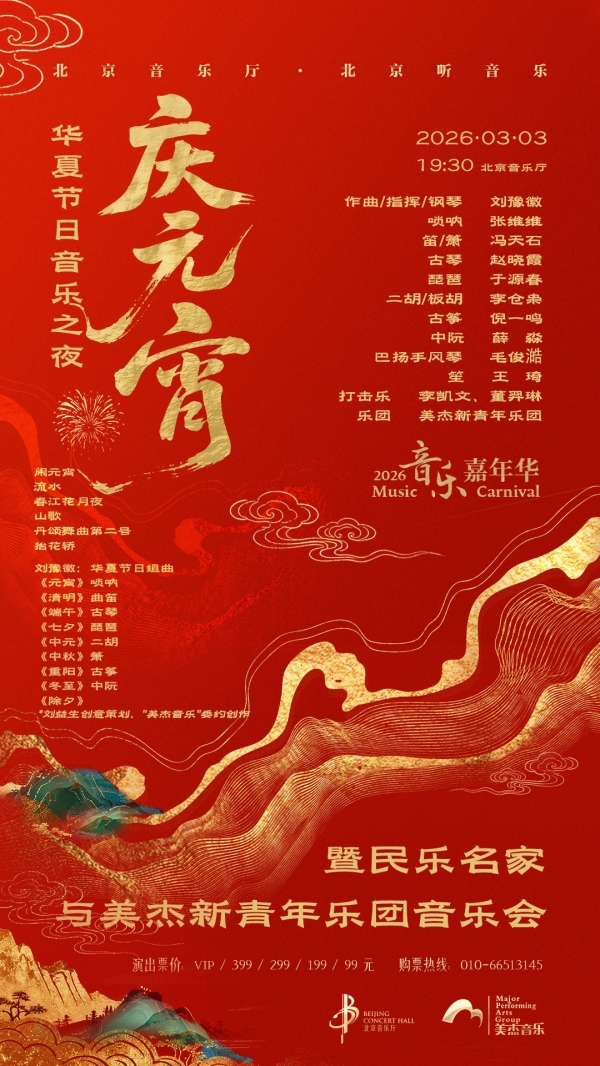 北京音乐厅·北京听音乐
庆元宵
华夏节日音乐之夜
2026·03·03
19:30 北京音乐厅
作曲/指挥/钢琴 刘豫徽
唢呐 张维维
笛/箫 冯天石
古琴 赵晓霞
琵琶 于源春
二胡/板胡 李仓枭
古筝 倪一鸣
中阮 薛淼
巴扬手风琴 毛俊澔
笙 王琦
打击乐 李凯文、董羿琳
乐团 美杰新青年乐团
2026 音乐嘉年华
Music Carnival
闹元宵
流水
春江花月夜
山歌
丹颂舞曲第二号
抬花轿
刘豫徽：华夏节日组曲
《元宵》唢呐
《清明》曲笛
《端午》古琴
《七夕》琵琶
《中元》二胡
《中秋》箫
《重阳》古筝
《冬至》中阮
《除夕》
*刘益生创意策划、"美杰音乐"委约创作
暨民乐名家
与美杰新青年乐团音乐会
演出票价：VIP / 399 / 299 / 199 / 99 元 购票热线：010-66513145
BEIJING
CONCERT HALL
北京音乐厅
Major
Performing
Arts
Group
美杰音乐